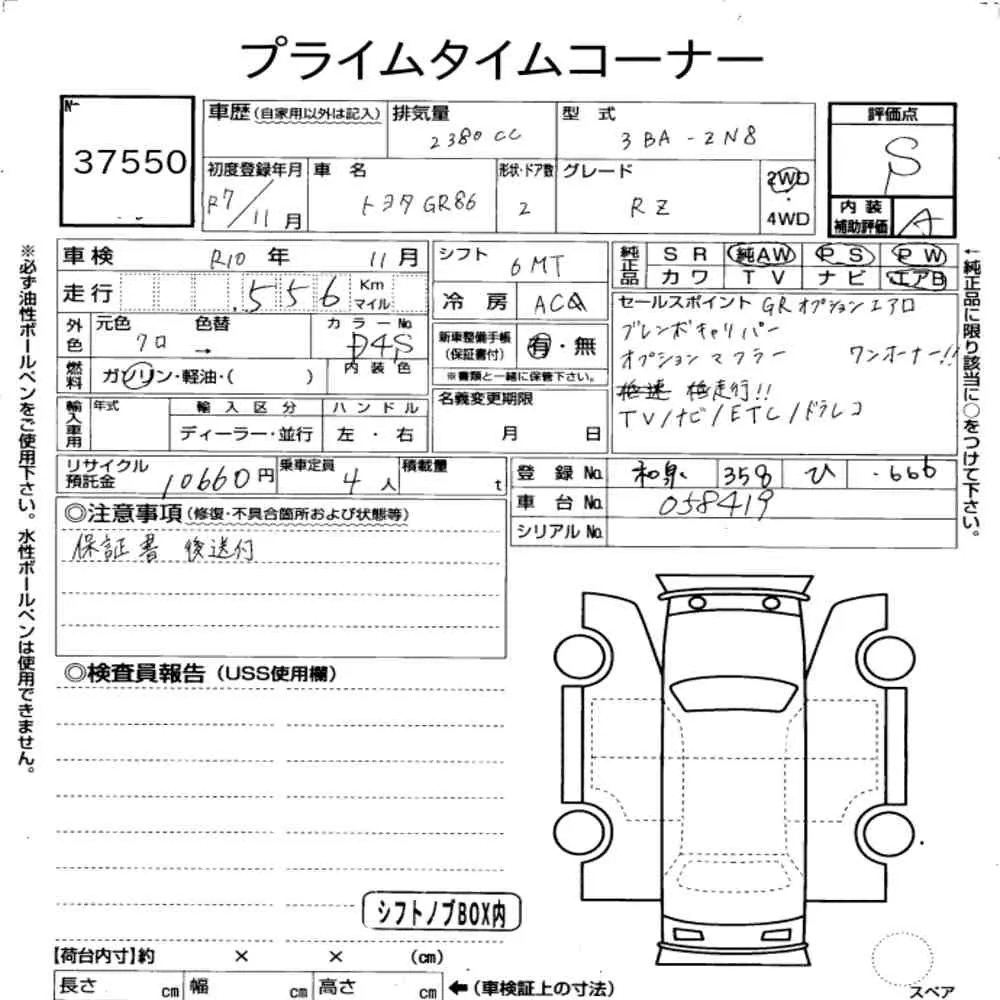 プライムタイムコーナー
№
37550
車歴(自家用以外は記入)
排気量
2380 CC
型 式
3BA-ZN8
評価点
S
初度登録年月
R7/11月
車 名
トヨタ GR86
形状・ドア数
2
グレード
RZ
2WD
4WD
内装補助評価
A
車検 R10 年 11月
走行 .556 Km マイル
シフト
6MT
冷房
ACA
純正品
SR 純AW PS PW
カワ TV ナビ エアB
外色
元色 色替
クロ →
カラーNo.
D4S
内装色
燃料
ガソリン・軽油・( )
新車整備手帳(保証書付)
有・無
※書類と一緒に保管下さい。
名義変更期限
月 日
セールスポイント GRオプションエアロ
ブレンボキャリパー
オプションマフラー ワンオーナー!!
極走行!!
TV/ナビ/ETC/ドラレコ
輸入車用
年式
輸入区分
ディーラー・並行
ハンドル
左・右
リサイクル預託金 10660円
乗車定員 4人
積載量 t
登録No. 和泉 358 ひ ・666
車台No. 058419
シリアルNo.
◎注意事項(修復・不具合箇所および状態等)
保証書 後送付
◎検査員報告(USS使用欄)
シフトノブBOX内
【荷台内寸】約 × × (cm)
長さ cm 幅 cm 高さ cm ←(車検証上の寸法)
スペア
※必ず油性ボールペンをご使用下さい。水性ボールペンは使用できません。
←純正品に限り該当に○をつけて下さい。